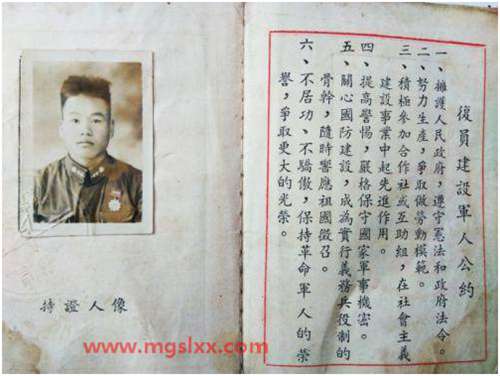 復員建設軍人公約
一、擁護人民政府，遵守憲法和政府法令。
二、努力生產，爭取做勞動模範。
三、積極參加合作社或互助組，在社會主義
建設事業中起先進作用。
四、提高警惕，嚴格保守國家軍事機密。
五、關心國防建設，成為實行義務兵役制的
骨幹，隨時響應祖國徵召。
六、不居功、不驕傲，保持革命軍人的榮
譽，爭取更大的光榮。
持證人像
www.mgslxx.com